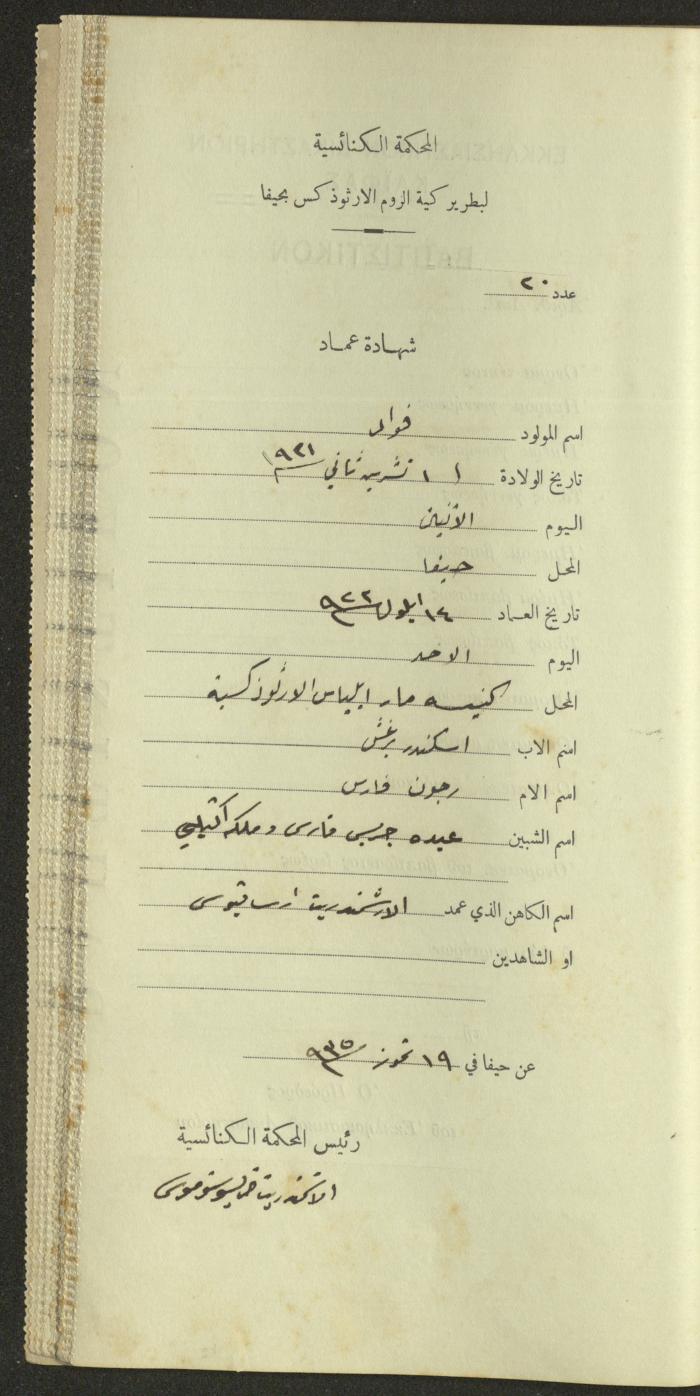 المحكمة الكنائسية
لبطريركية الروم الارثوذكس بحيفا
عدد ٢٠
شهادة عماد
اسم المولود
تاريخ الولادة ١١ تشرين ثاني ٩٢١
اليوم الاثنين
المحل حيفا
تاريخ العماد ١٤ ايلول ٩٢٢
اليوم الاحد
المحل كنيسه مار ايلياس الارثوذكسية
اسم الاب اسكندر برغش
اسم الام فارس
اسم الشبين عبده جريس فارس وملكه
اسم الكاهن الذي عمد الارشمندريت
او الشاهدين
عن حيفا في ١٩ تموز ٩٣٥
رئيس المحكمة الكنائسية